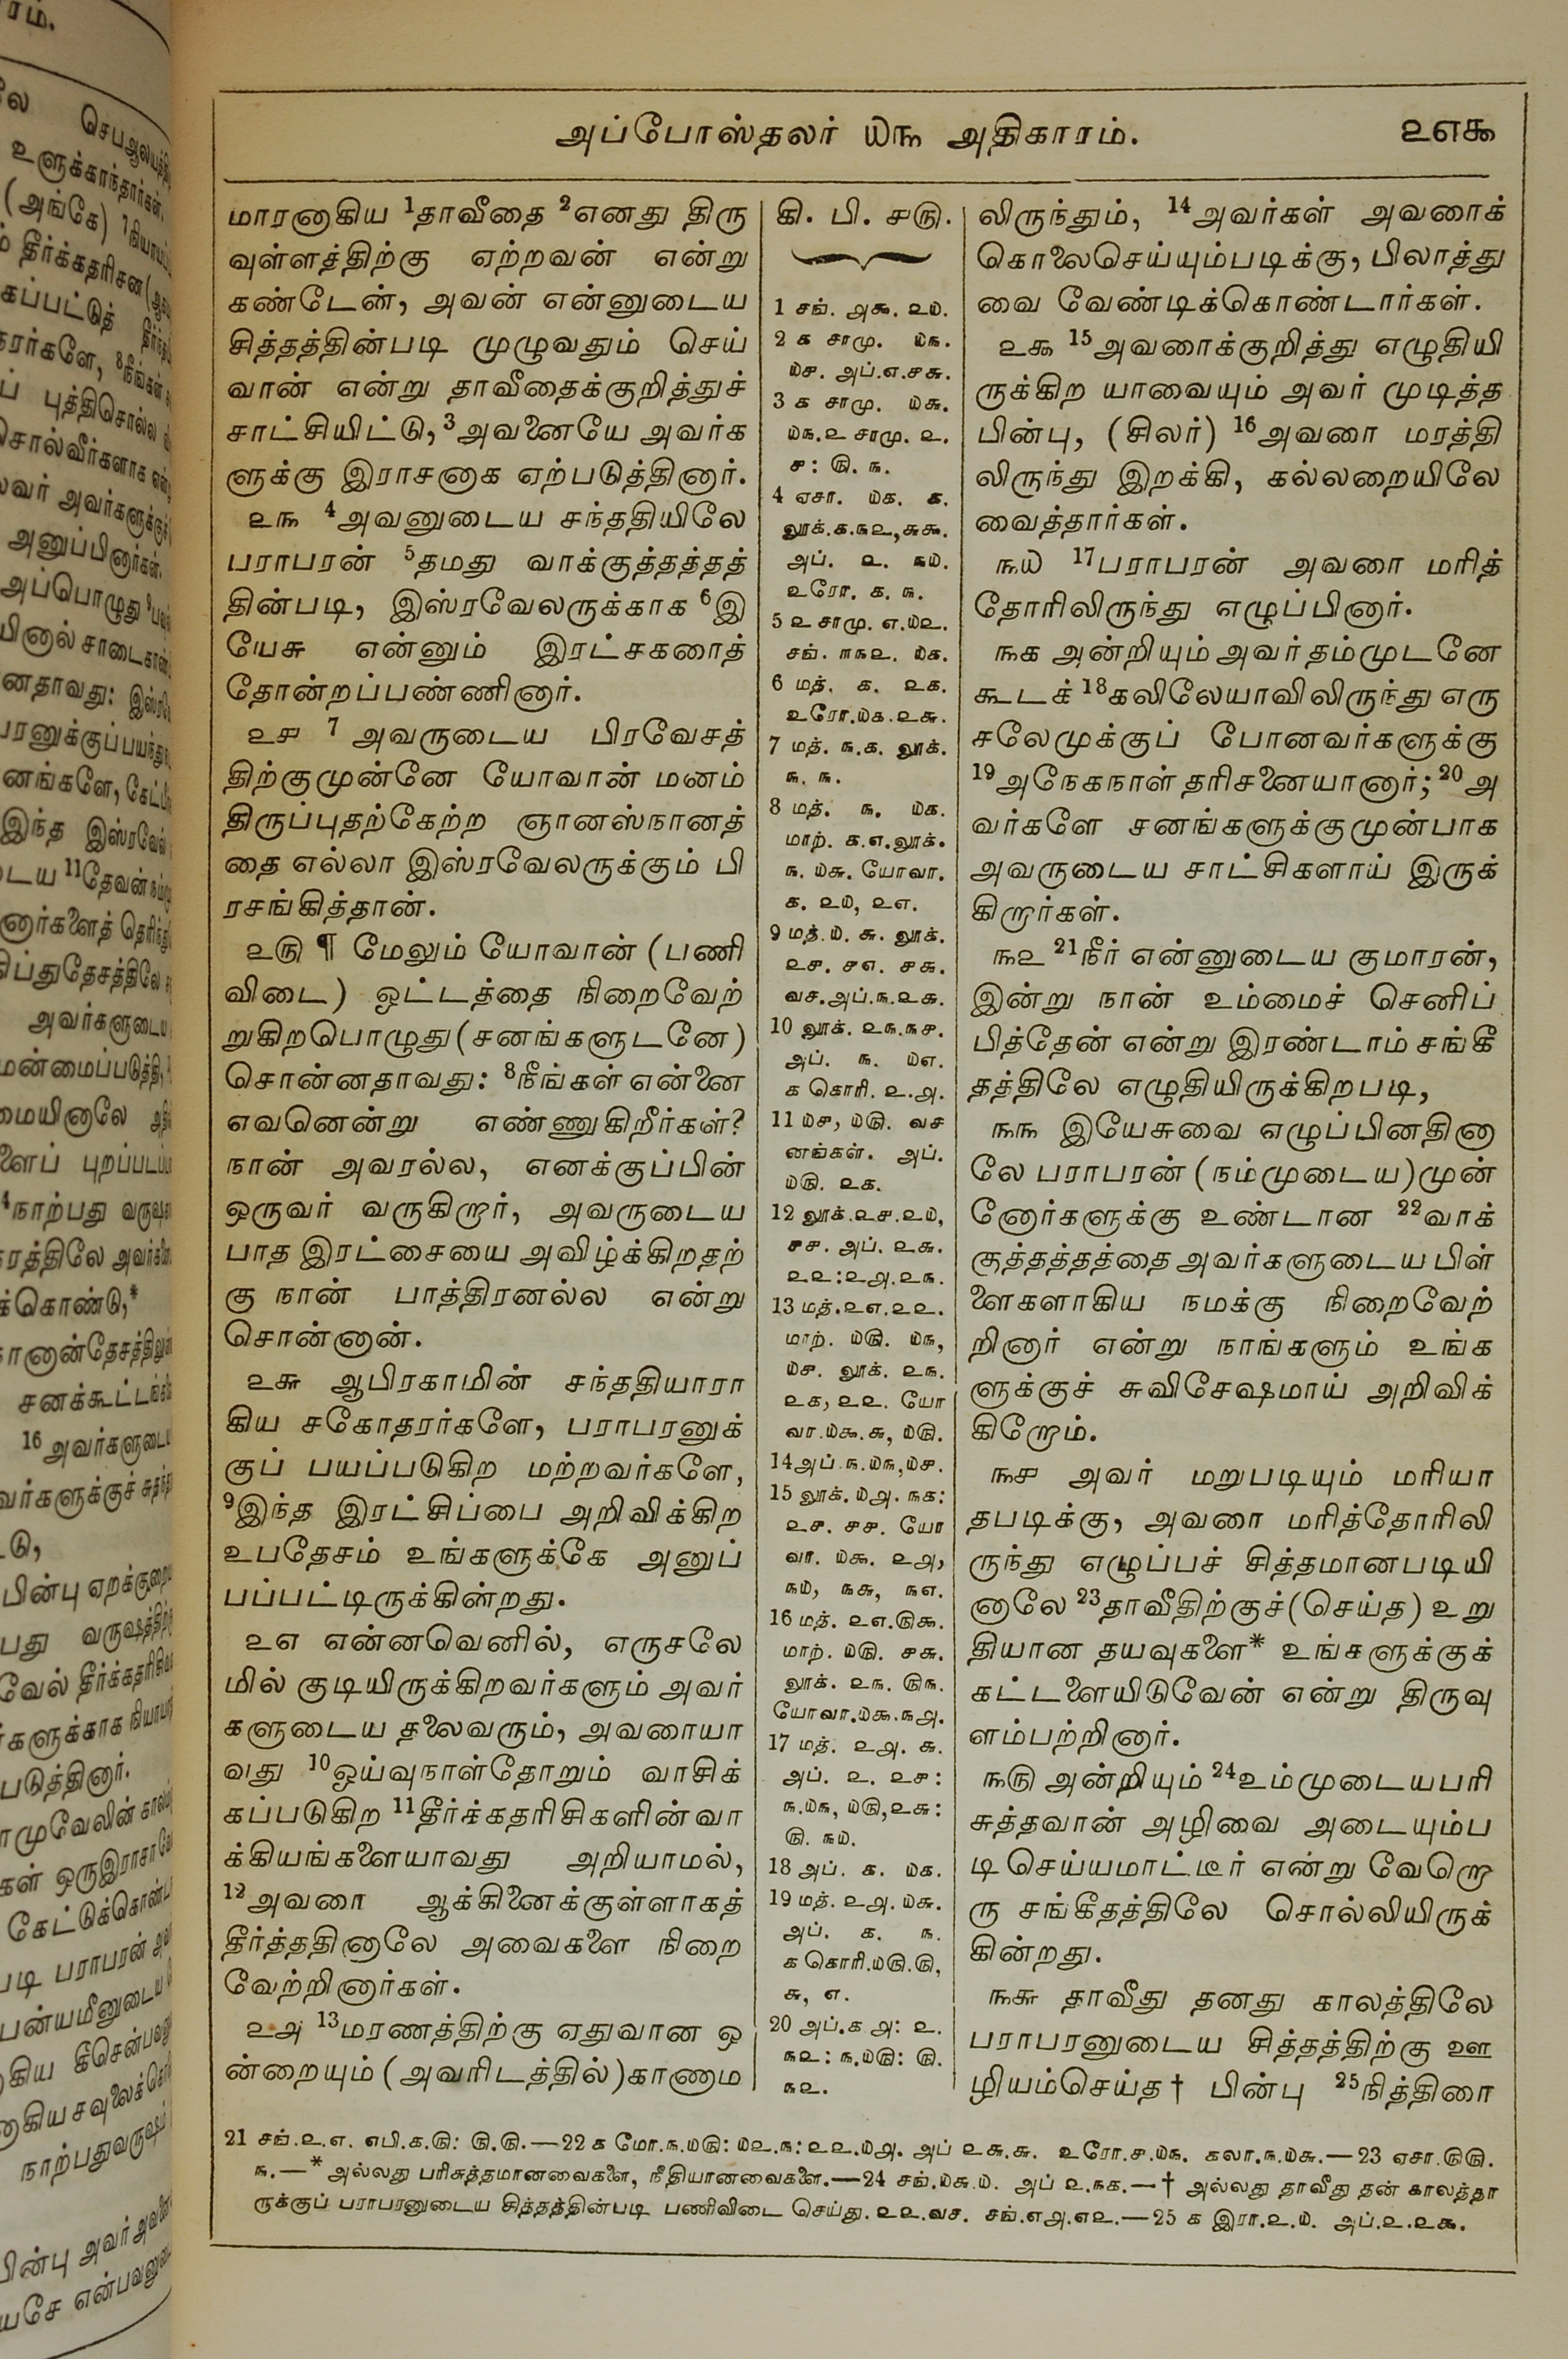 அப்போஸ்தலர் ௰௩ அதிகாரம். ௨௭௯
மாரனாகிய 1தாவீதை 2எனது திரு
வுள்ளத்திற்கு ஏற்றவன் என்று
கண்டேன், அவன் என்னுடைய
சித்தத்தின்படி முழுவதும் செய்
வான் என்று தாவீதைக்குறித்துச்
சாட்சியிட்டு, 3அவனையே அவர்க
ளுக்கு இராசனாக ஏற்படுத்தினார்.
௨௩ 4அவனுடைய சந்ததியிலே
பராபரன் 5தமது வாக்குத்தத்தத்
தின்படி, இஸ்ரவேலருக்காக 6இ
யேசு என்னும் இரட்சகரைத்
தோன்றப்பண்ணினார்.
௨௪ 7 அவருடைய பிரவேசத்
திற்குமுன்னே யோவான் மனம்
திருப்புதற்கேற்ற ஞானஸ்நானத்
தை எல்லா இஸ்ரவேலருக்கும் பி
ரசங்கித்தான்.
௨௫ ¶ மேலும் யோவான் (பணி
விடை) ஓட்டத்தை நிறைவேற்
றுகிறபொழுது (சனங்களுடனே)
சொன்னதாவது: 8நீங்கள் என்னை
எவனென்று எண்ணுகிறீர்கள்?
நான் அவரல்ல, எனக்குப்பின்
ஒருவர் வருகிறார், அவருடைய
பாத இரட்சையை அவிழ்க்கிறதற்
கு நான் பாத்திரனல்ல என்று
சொன்னான்.
௨௬ ஆபிரகாமின் சந்ததியாரா
கிய சகோதரர்களே, பராபரனுக்
குப் பயப்படுகிற மற்றவர்களே,
9இந்த இரட்சிப்பை அறிவிக்கிற
உபதேசம் உங்களுக்கே அனுப்
பப்பட்டிருக்கின்றது.
௨௭ என்னவெனில், எருசலே
மில் குடியிருக்கிறவர்களும் அவர்
களுடைய தலைவரும், அவரையா
வது 10ஓய்வுநாள்தோறும் வாசிக்
கப்படுகிற 11தீர்க்கதரிசிகளின் வா
க்கியங்களையாவது அறியாமல்,
12அவரை ஆக்கினைக்குள்ளாகத்
தீர்த்ததினாலே அவைகளை நிறை
வேற்றினார்கள்.
௨௮ 13மரணத்திற்கு ஏதுவான ஒ
ன்றையும் (அவரிடத்தில்) காணாம
கி. பி. ௪௫.
1 சங். ௮௯. ௨௰.
2 ௧ சாமு. ௰௩.
௰௪. அப்.௭.௪௬.
3 ௧ சாமு. ௰௬.
௰௩.௨ சாமு. ௨.
௪: ௫. ௩.
4 ஏசா. ௰௧. ௧.
லூக்.௧.௩௨,௬௯.
அப். ௨. ௩௰.
உரோ. ௧. ௩.
5 ௨ சாமு. ௭.௰௨.
சங். ௱௩௨. ௰௧.
6 மத். ௧. ௨௧.
உரோ.௰௧.௨௬.
7 மத். ௩.௧. லூக்.
௩. ௩.
8 மத். ௩. ௰௧.
மாற். ௧.௭.லூக்.
௩. ௰௬. யோவா.
௧. ௨௰, ௨௭.
9 மத்.௰. ௬. லூக்.
௨௪. ௪௭. ௪௬.
வச.அப்.௩.௨௬.
10 லூக். ௨௩.௩௪.
அப். ௩. ௰௭.
௧ கொரி. ௨.௮.
11 ௰௪, ௰௫. வச
னங்கள். அப்.
௰௫. ௨௧.
12 லூக்.௨௪.௨௰,
௪௪. அப். ௨௬.
௨௨:௨௮.௨௩.
13 மத்.௨௭.௨௨.
மாற். ௰௫. ௰௩,
௰௪. லூக். ௨௩.
௨௧, ௨௨. யோ
வா.௰௯.௬, ௰௫.
14அப்.௩.௰௩,௰௪.
15 லூக். ௰௮. ௩௧:
௨௪. ௪௪. யோ
வா. ௰௯. ௨௮,
௩௰, ௩௬, ௩௭.
16 மத். ௨௭.௫௯.
மாற். ௰௫. ௪௬.
லூக். ௨௩. ௫௩.
யோவா.௰௯.௩௮.
17 மத். ௨௮. ௬.
அப். ௨. ௨௪:
௩.௰௩, ௰௫,௨௬:
௫. ௩௰.
18 அப். ௧. ௰௧.
19 மத். ௨௮. ௰௬.
அப். ௧. ௩.
௧ கொரி.௰௫.௫,
௬, ௭.
20 அப்.௧ ௮: ௨.
௩௨: ௩.௰௫: ௫.
௩௨.
லிருந்தும், 14அவர்கள் அவரைக்
கொலைசெய்யும்படிக்கு, பிலாத்து
வை வேண்டிக்கொண்டார்கள்.
௨௯ 15அவரைக்குறித்து எழுதியி
ருக்கிற யாவையும் அவர் முடித்த
பின்பு, (சிலர்) 16அவரை மரத்தி
லிருந்து இறக்கி, கல்லறையிலே
வைத்தார்கள்.
௩௰ 17பராபரன் அவரை மரித்
தோரிலிருந்து எழுப்பினார்.
௩௧ அன்றியும் அவர் தம்முடனே
கூடக் 18கலிலேயாவிலிருந்து எரு
சலேமுக்குப் போனவர்களுக்கு
19அநேகநாள் தரிசனையானார்; 20அ
வர்களே சனங்களுக்குமுன்பாக
அவருடைய சாட்சிகளாய் இருக்
கிறார்கள்.
௩௨ 21நீர் என்னுடைய குமாரன்,
இன்று நான் உம்மைச் செனிப்
பித்தேன் என்று இரண்டாம் சங்கீ
தத்திலே எழுதியிருக்கிறபடி,
௩௩ இயேசுவை எழுப்பினதினா
லே பராபரன் (நம்முடைய) முன்
னோர்களுக்கு உண்டான 22வாக்
குத்தத்தத்தை அவர்களுடைய பிள்
ளைகளாகிய நமக்கு நிறைவேற்
றினார் என்று நாங்களும் உங்க
ளுக்குச் சுவிசேஷமாய் அறிவிக்
கிறோம்.
௩௪ அவர் மறுபடியும் மரியா
தபடிக்கு, அவரை மரித்தோரிலி
ருந்து எழுப்பச் சித்தமானபடியி
னாலே 23தாவீதிற்குச் (செய்த) உறு
தியான தயவுகளை* உங்களுக்குக்
கட்டளையிடுவேன் என்று திருவு
ளம்பற்றினார்.
௩௫ அன்றியும் 24உம்முடைய பரி
சுத்தவான் அழிவை அடையும்ப
டி செய்யமாட்டீர் என்று வேறொ
ரு சங்கீதத்திலே சொல்லியிருக்
கின்றது.
௩௬ தாவீது தனது காலத்திலே
பராபரனுடைய சித்தத்திற்கு ஊ
ழியம்செய்த† பின்பு 25நித்திரை
21 சங்.௨.௭. எபி.௧.௫: ௫.௫.—22 ௧ மோ.௩.௰௫: ௰௨.௩: ௨௨.௰௮. அப் ௨௬.௬. உரோ.௪.௰௩. கலா.௩.௰௬.—23 ஏசா.௫௫.
௩.—* அல்லது பரிசுத்தமானவைகளை, நீதியானவைகளை.—24 சங்.௰௬.௰. அப் ௨.௩௧.—† அல்லது தாவீது தன் காலத்தா
ருக்குப் பராபரனுடைய சித்தத்தின்படி பணிவிடை செய்து. ௨௨.வச. சங்.௭௮.௭௨.—25 ௧ இரா.௨.௰. அப்.௨.௨௯.